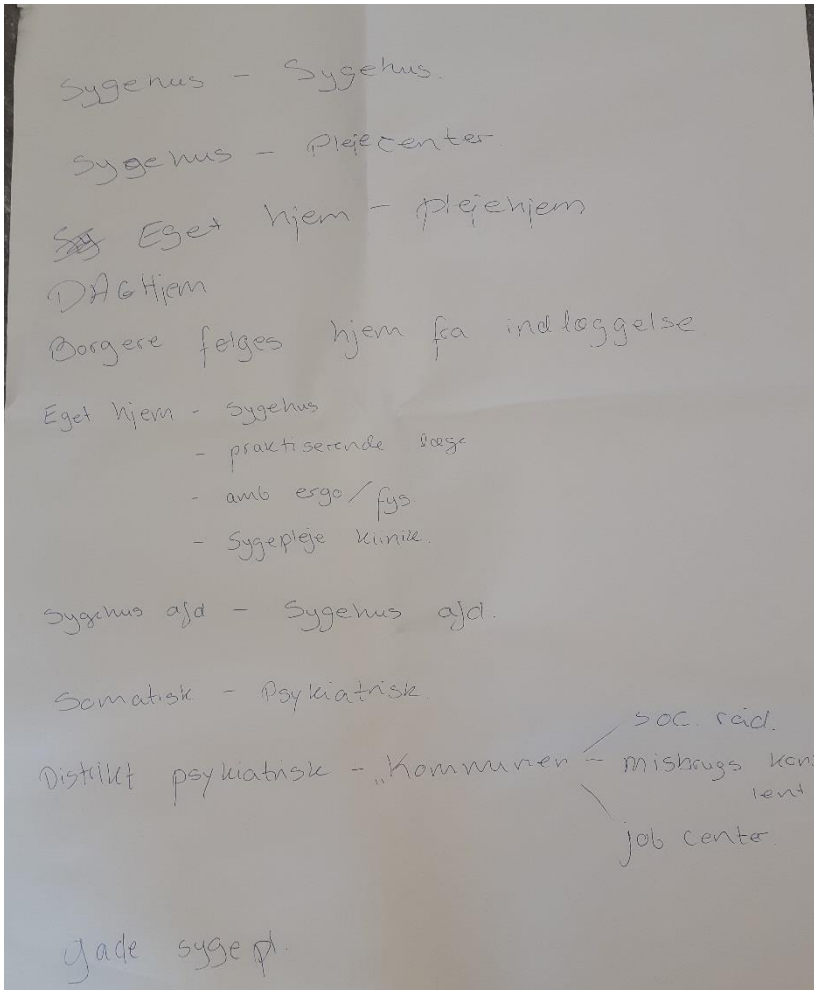 Sygehus - Sygehus.
Sygehus - Plejecenter
Eget hjem - plejehjem
DAGHjem
Borgere følges hjem fra indlæggelse
Eget hjem - Sygehus
- praktiserende læge
- amb ergo/fys
- Sygepleje klinik.
Sygehus afd - Sygehus afd.
Somatisk - Psykiatrisk.
soc. råd.
Distrikt psykiatrisk - "Kommunen - misbrugs kon
lent
job center
gade sygepl.